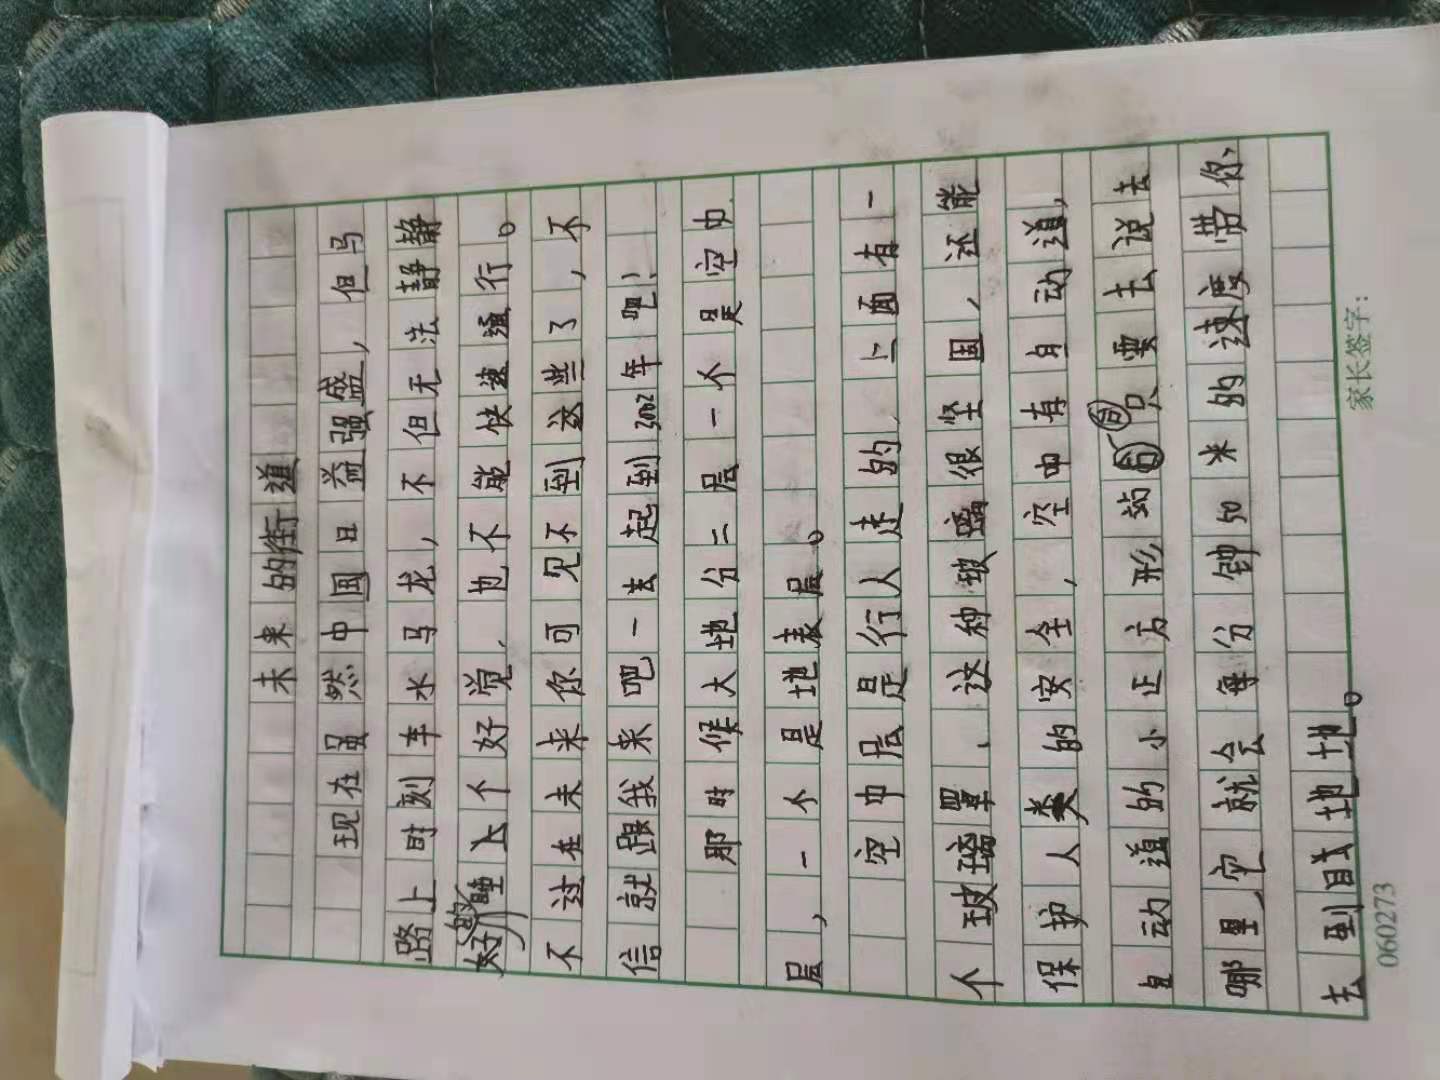 未来的街道
现在虽然中国日益强盛，但马
路上时刻车水马龙，不但无法静静
好好睡上个好觉，也不能快速通行。
不过在未来你可见不到这些了，不
信就跟我来吧一去起到3002年吧！
那时候大地分二层一个是空中
层，一个是地表层。
空中层是行人走的，上面有一
个玻璃罩，这种玻璃很坚固，还能
保护人类的安全，空中有自动道，
自动道的小正方形站向只要去说去
哪里，它就会每分钟50米的速度带你
去到目地地。
家长签字：
060273